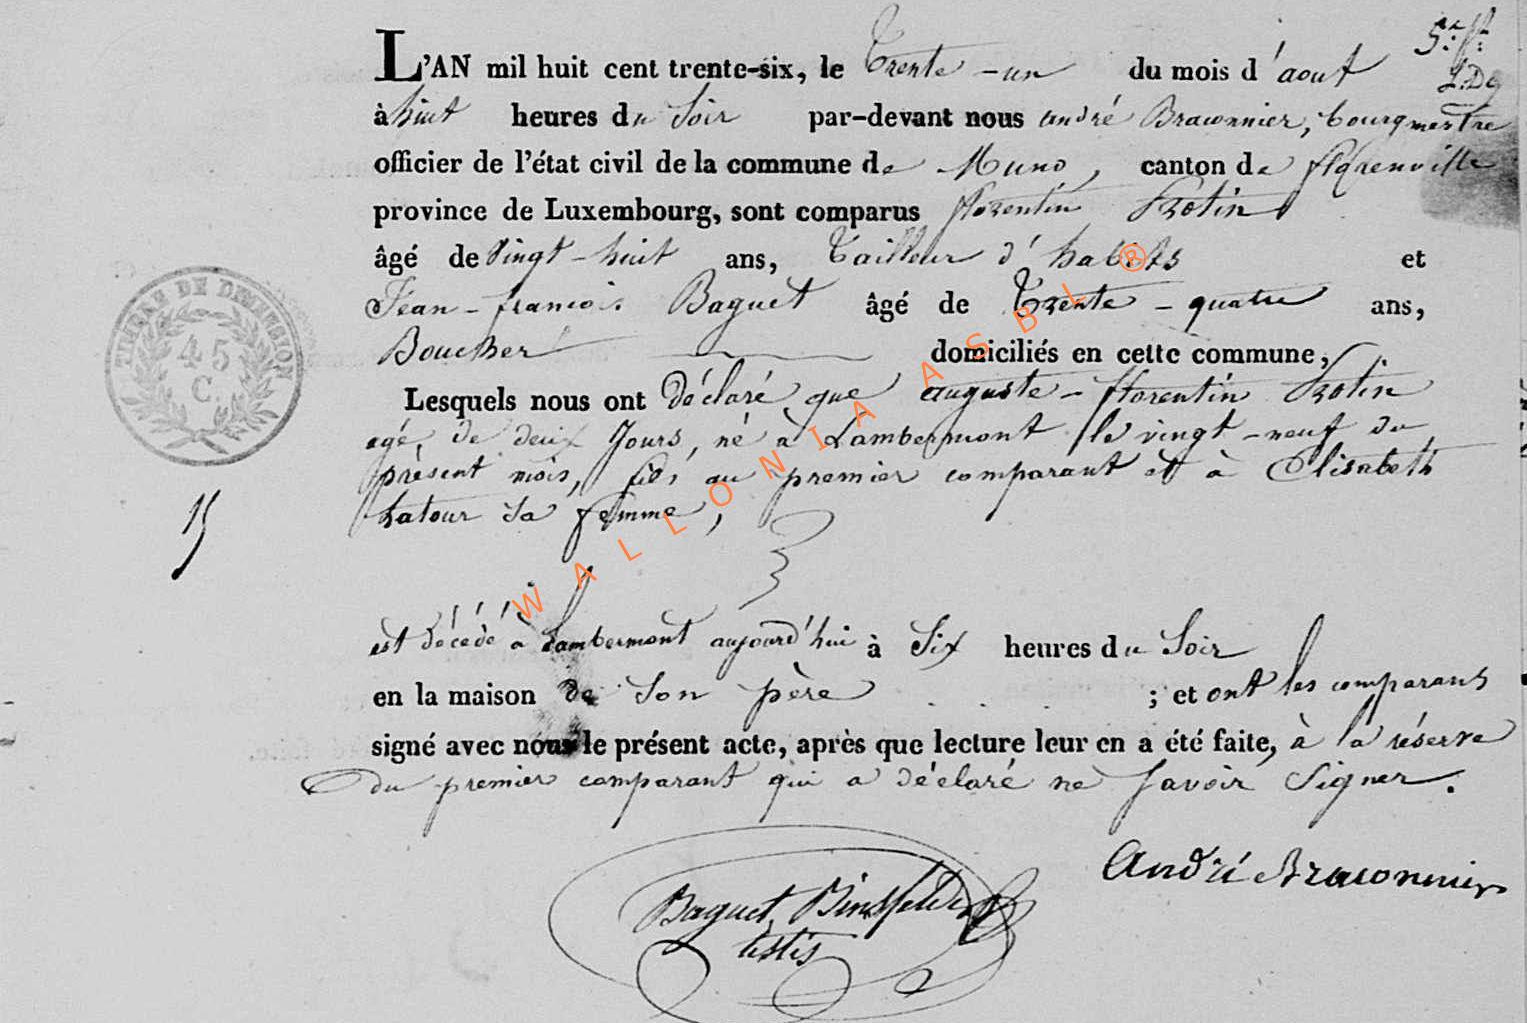 L'AN mil huit cent trente-six, le Trente-un du mois d'aout
à huit heures du Soir par-devant nous andré Braconnier, bourgmestre
officier de l'état civil de la commune de Muno, canton de florenville
province de Luxembourg, sont comparus florentin Protin
âgé de Vingt-huit ans, Tailleur d'habits et
Jean-francois Baguet âgé de Trente-quatre ans,
Boucher domiciliés en cette commune,
Lesquels nous ont déclaré que auguste-florentin Protin
agé de deux Jours, né à Lambermont le vingt-neuf du
présent mois, fils au premier comparant et à Elisabeth
hatour Sa femme,
est décédé à Lambermont aujourd'hui à Six heures du Soir
en la maison de Son père ; et ont les comparans
signé avec nous le présent acte, après que lecture leur en a été faite, à la réserve
du premier comparant qui a déclaré ne Savoir Signer.
André Braconnier
Baguet Binsfeld
testis
TIMBRE DE DIMENSION
45
C.
15
WALLONIA ASBL ®